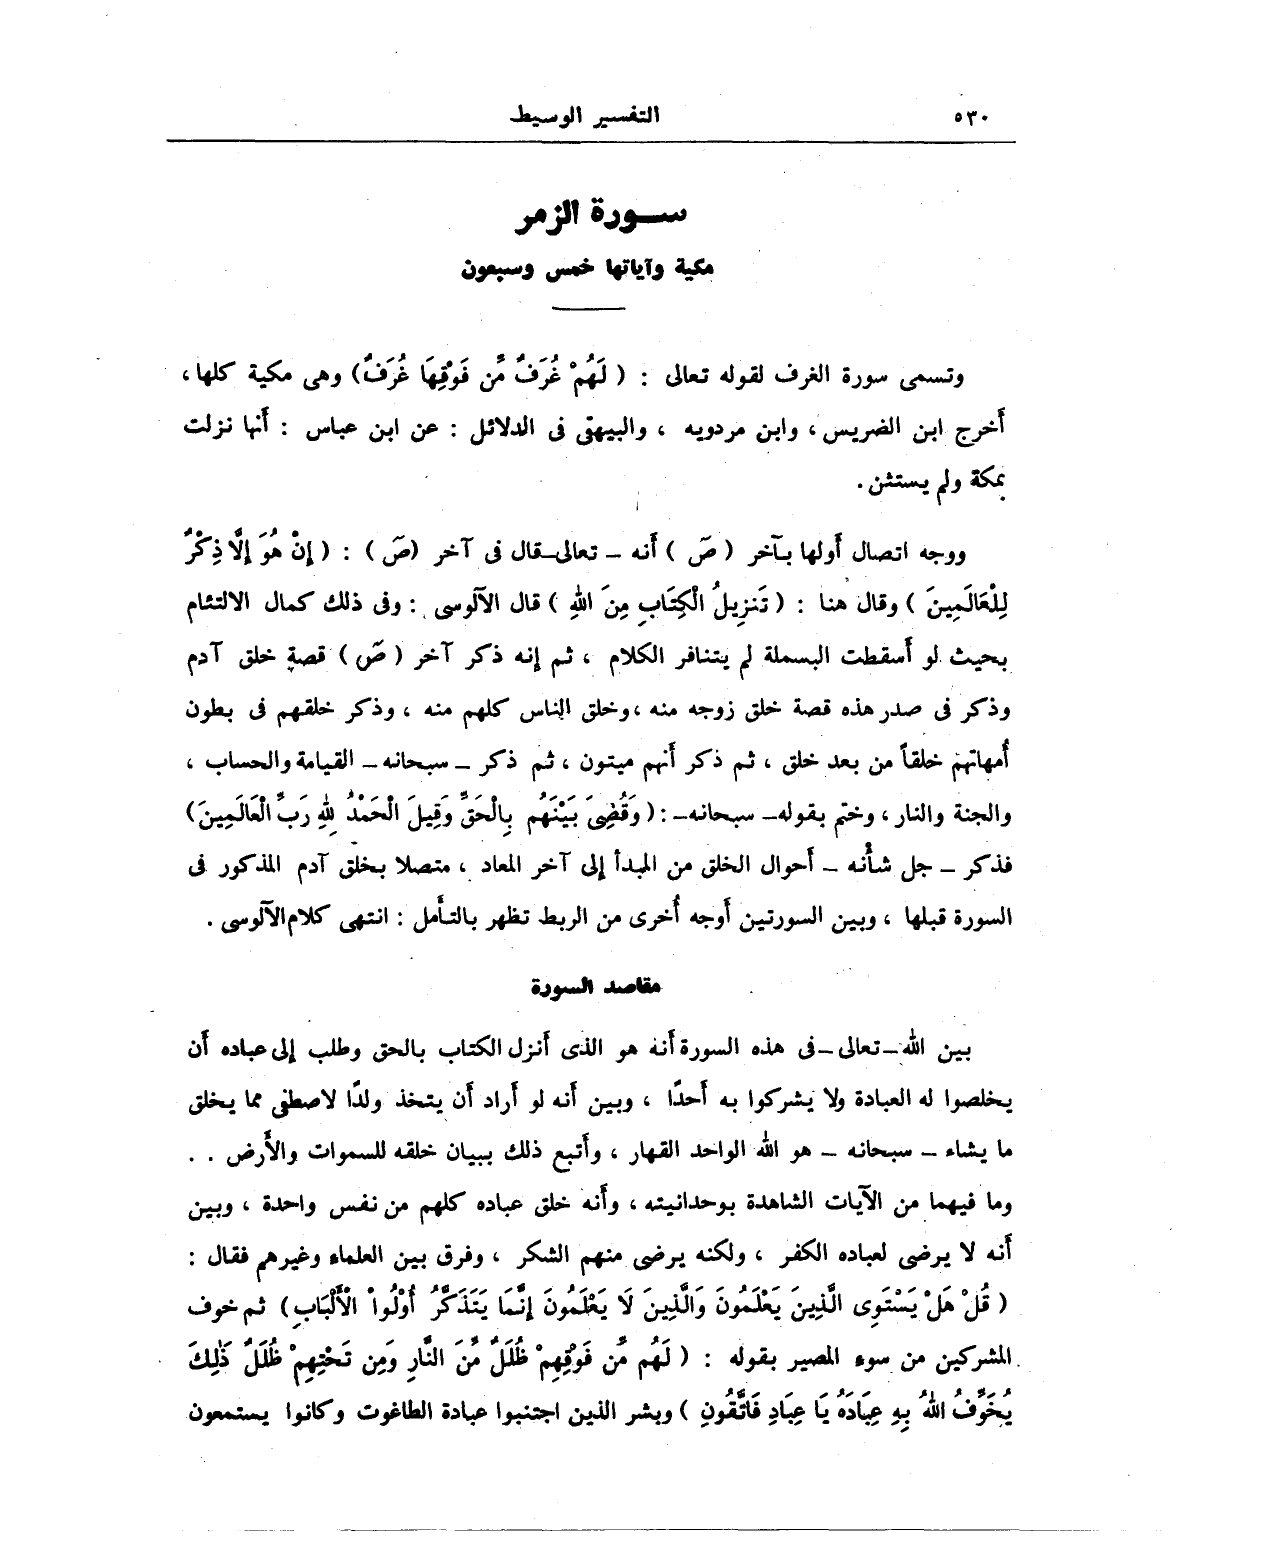 ٥٣٠ التفسير الوسيط
ســورة الزمر
مكية وآياتها خمس وسبعون
وتسمى سورة الغرف لقوله تعالى : ( لَهُمْ غُرَفٌ مِّن فَوْقِهَا غُرَفٌ) وهى مكية كلها،
أخرج ابن الضريس، وابن مردويه ، والبيهقى فى الدلائل : عن ابن عباس : أنها نزلت
بمكة ولم يستثن.
ووجه اتصال أولها بآخر ( صَ ) أنه – تعالى–قال فى آخر (صَ ) : ( إِنْ هُوَ إِلَّا ذِكْرٌ
لِلْعَالَمِينَ ) وقال هنا : ( تَنزِيلُ الْكِتَابِ مِنَ اللهِ ) قال الآلوسى : وفى ذلك كمال الالتئام
بحيث لو أسقطت البسملة لم يتنافر الكلام ، ثم إنه ذكر آخر ( صَ ) قصة خلق آدم
وذكر فى صدر هذه قصة خلق زوجه منه ،وخلق الناس كلهم منه ، وذكر خلقهم فى بطون
أمهاتهم خلقاً من بعد خلق ، ثم ذكر أنهم ميتون ، ثم ذكر – سبحانه – القيامة والحساب ،
والجنة والنار ، وختم بقوله– سبحانه–: ( وَقُضِىَ بَيْنَهُم بِالْحَقِّ وَقِيلَ الْحَمْدُ لِلهِ رَبِّ الْعَالَمِينَ)
فذكر – جل شأنه – أحوال الخلق من المبدأ إلى آخر المعاد ، متصلا بخلق آدم المذكور فى
السورة قبلها ، وبين السورتين أوجه أخرى من الربط تظهر بالتأمل : انتهى كلام الآلوسى .
مقاصد السورة
بين الله – تعالى –فى هذه السورة أنه هو الذى أنزل الكتاب بالحق وطلب إلى عباده أن
يخلصوا له العبادة ولا يشركوا به أحدًا ، وبين أنه لو أراد أن يتخذ ولدًا لاصطفى مما يخلق
ما يشاء – سبحانه – هو الله الواحد القهار ، وأتبع ذلك ببيان خلقه للسموات والأرض . .
وما فيهما من الآيات الشاهدة بوحدانيته ، وأنه خلق عباده كلهم من نفس واحدة ، وبين
أنه لا يرضى لعباده الكفر ، ولكنه يرضى منهم الشكر ، وفرق بين العلماء وغيرهم فقال :
( قُلْ هَلْ يَسْتَوِى الَّذِينَ يَعْلَمُونَ وَالَّذِينَ لَا يَعْلَمُونَ إِنَّمَا يَتَذَكَّرُ أُوْلُواْ الْأَلْبَابِ ) ثم خوف
المشركين من سوء المصير بقوله : ( لَهُم مِّن فَوْقِهِمْ ظُلَلٌ مِّنَ النَّارِ وَمِن تَحْتِهِمْ ظُلَلٌ ذَٰلِكَ
يُخَوِّفُ اللهُ بِهِ عِبَادَهُ يَا عِبَادِ فَاتَّقُونِ ) وبشر الذين اجتنبوا عبادة الطاغوت وكانوا يستمعون